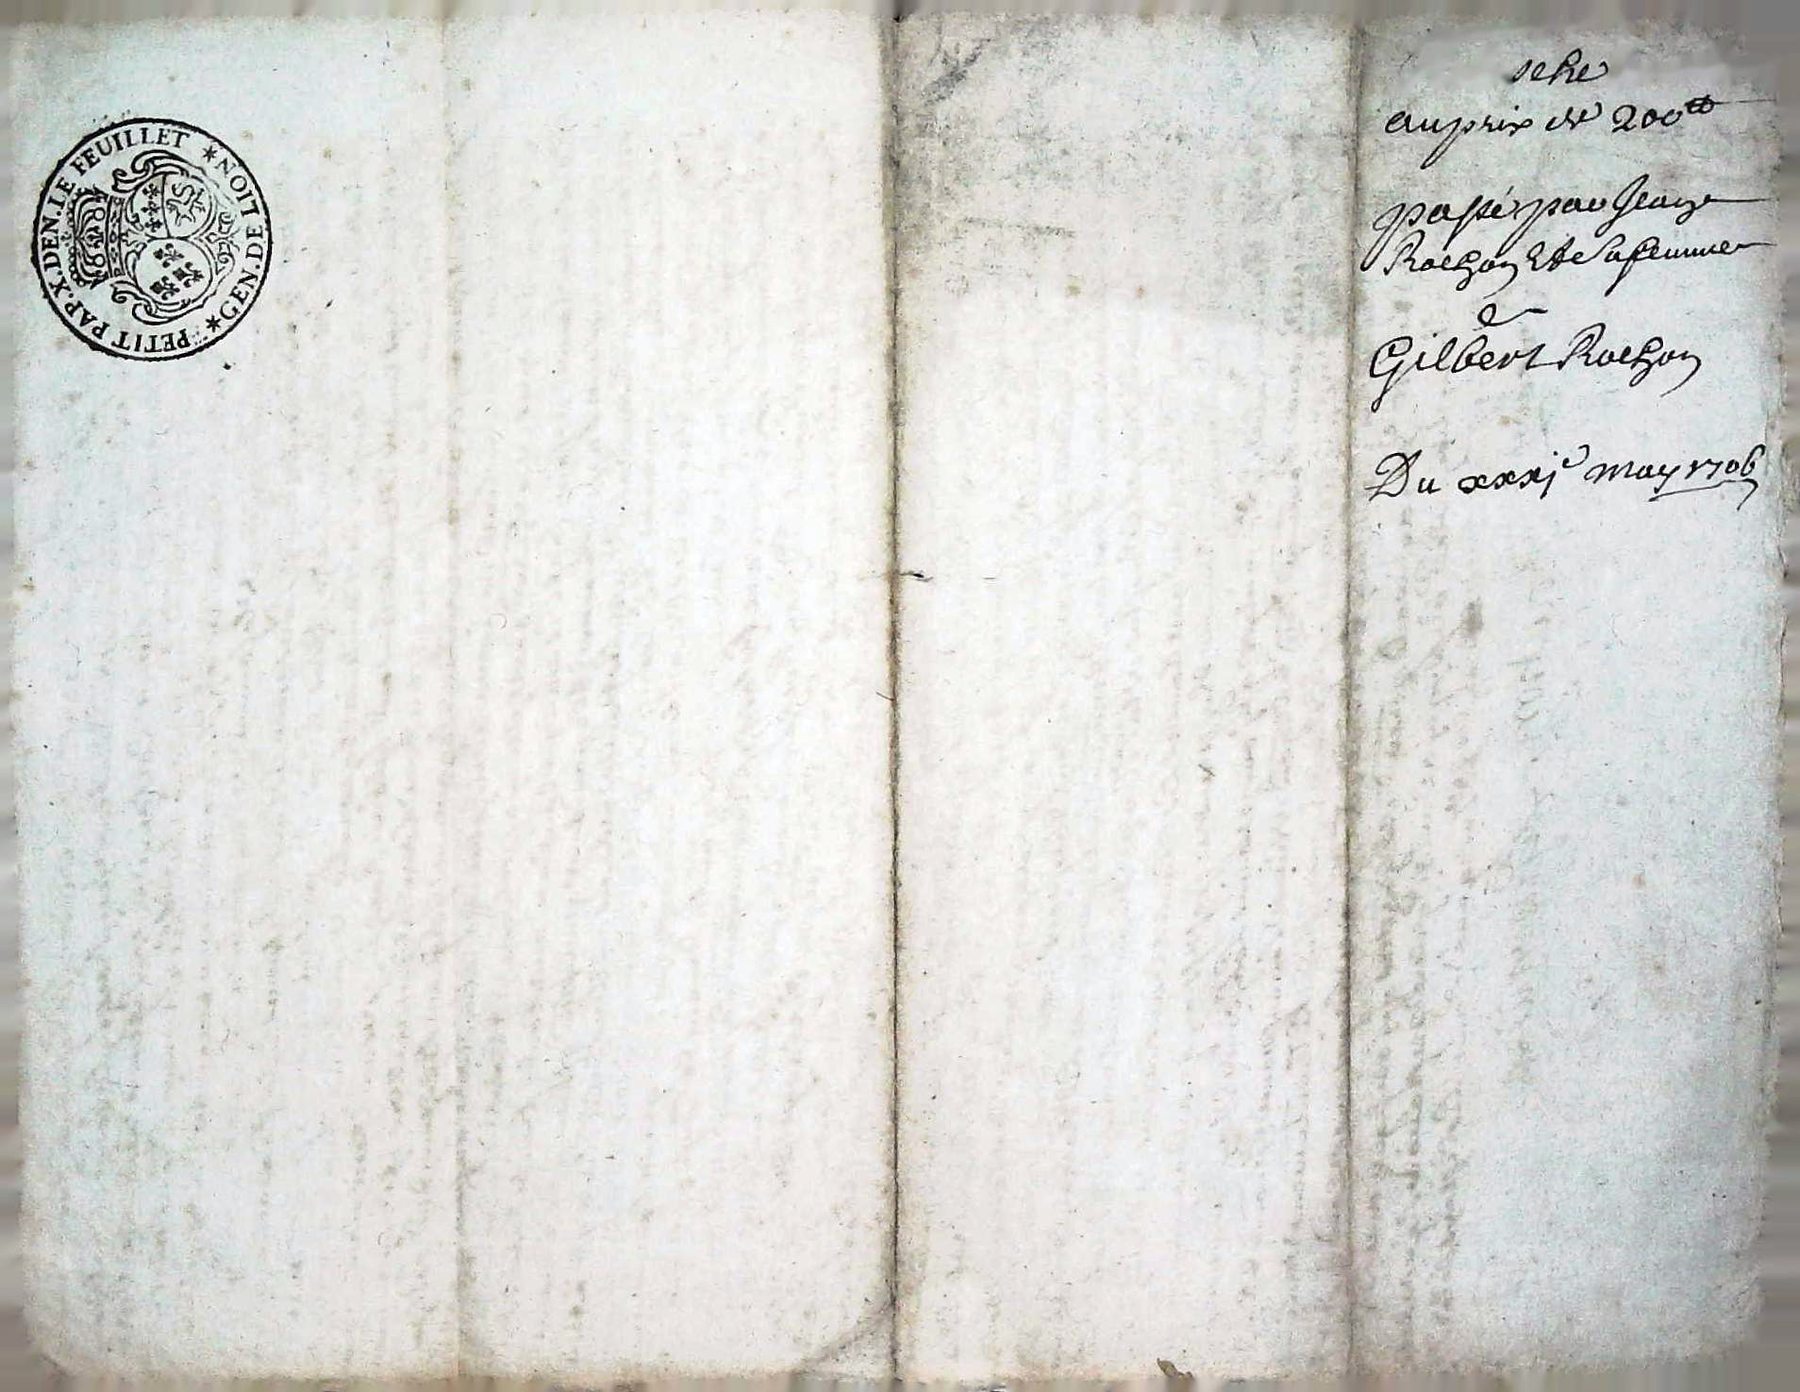 PETIT PAP. X. DEN. LE FEUILLET * GEN. DE LION *
au prix de 200tt
passé par
Rochon et sa femme
a
Gilbert Rochon
Du xxxje may 1706